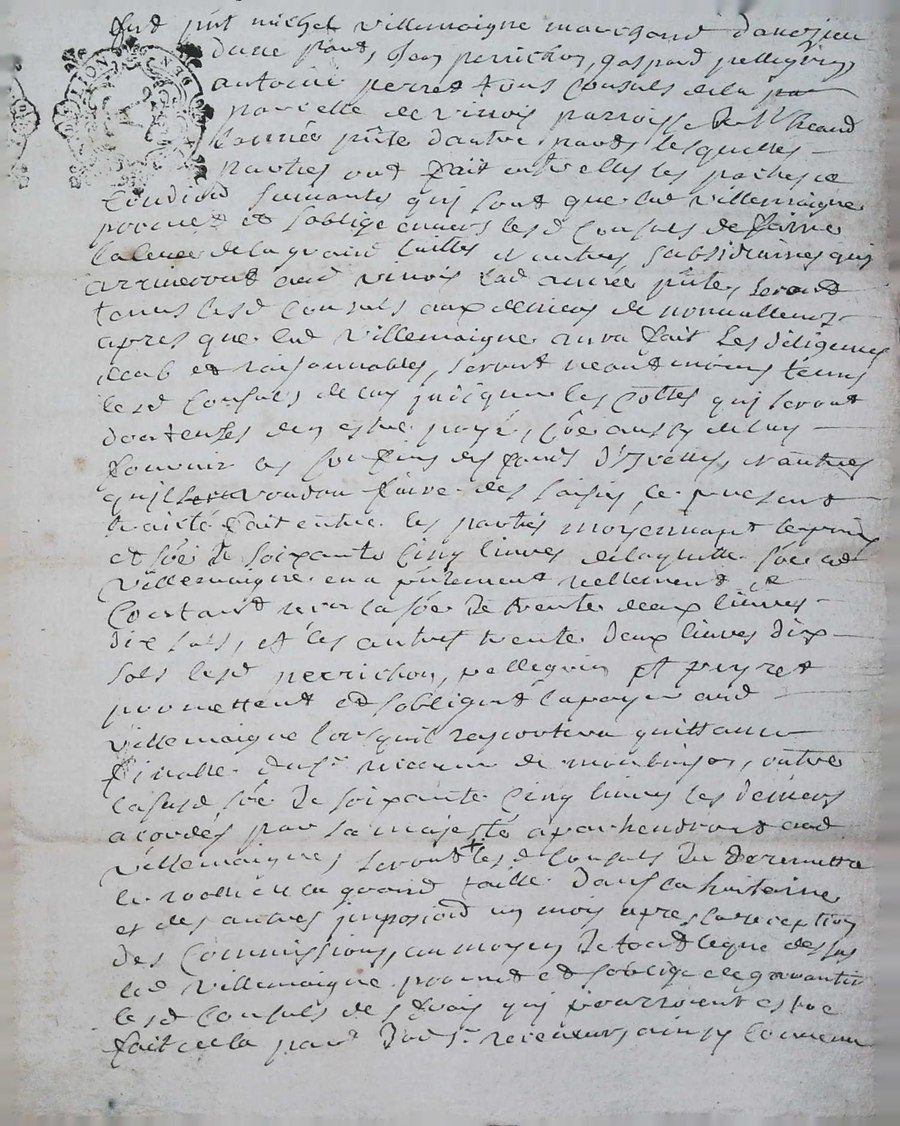 fut pnt michel villemaigne marchand danezieu
dune part, Jean perrichon, gaspard pellegrin
antoine perret tous Consuls de la
parcelle de vinois parroisse de St
Lannée pnte dautre part, lesquelles
parties ont fait entrelles les paches et
Condions suivants qui sont que led villemaigne
promet et soblige envers lesd Consuls de faire
la levee de la grand taille et autres subsidiaires qui
arriveront aud vinois lad année pnte, seront
tenus lesd Consuls aux deniers de nonvalleurs
apres que led villemaigne aura fait les diligences
et raisonnables, seront neantmoins tenus
lesd Consuls de les cottes qui seront
douteuses den estre payé, aussy
pouvoir les des fonds et autres
quils voudra faire des saisies, le present
traicté fait entre les parties moyennant le prix
et sôe de soixante Cinq livres de laquelle sôe led
villemaigne en a purement reellement et
Contant receu la sôe de trente deux livres
dix sols, et les autres trente deux livres dix
sols lesd perrichon, pellegrin et peyret
promettent et sobligent la payer aud
villemaigne lorsquil raportera quittance
finalle du sr receveur de monbrison, outre
la susd sôe de soixante Cinq livres les deniers
acordés par sa majesté aparhendront aud
villemaigne, seront lesd Consuls de remettre
le rolle de la grand taille dans la huitaine
et des autres imposiond un mois apres la reception
des Commissions, au moyen de tout le que dessus
led villemaigne promet et soblige de garantir
lesd Consuls des frais qui pourroient estre
fait de la part dud sr receveur, ainsy Convenu